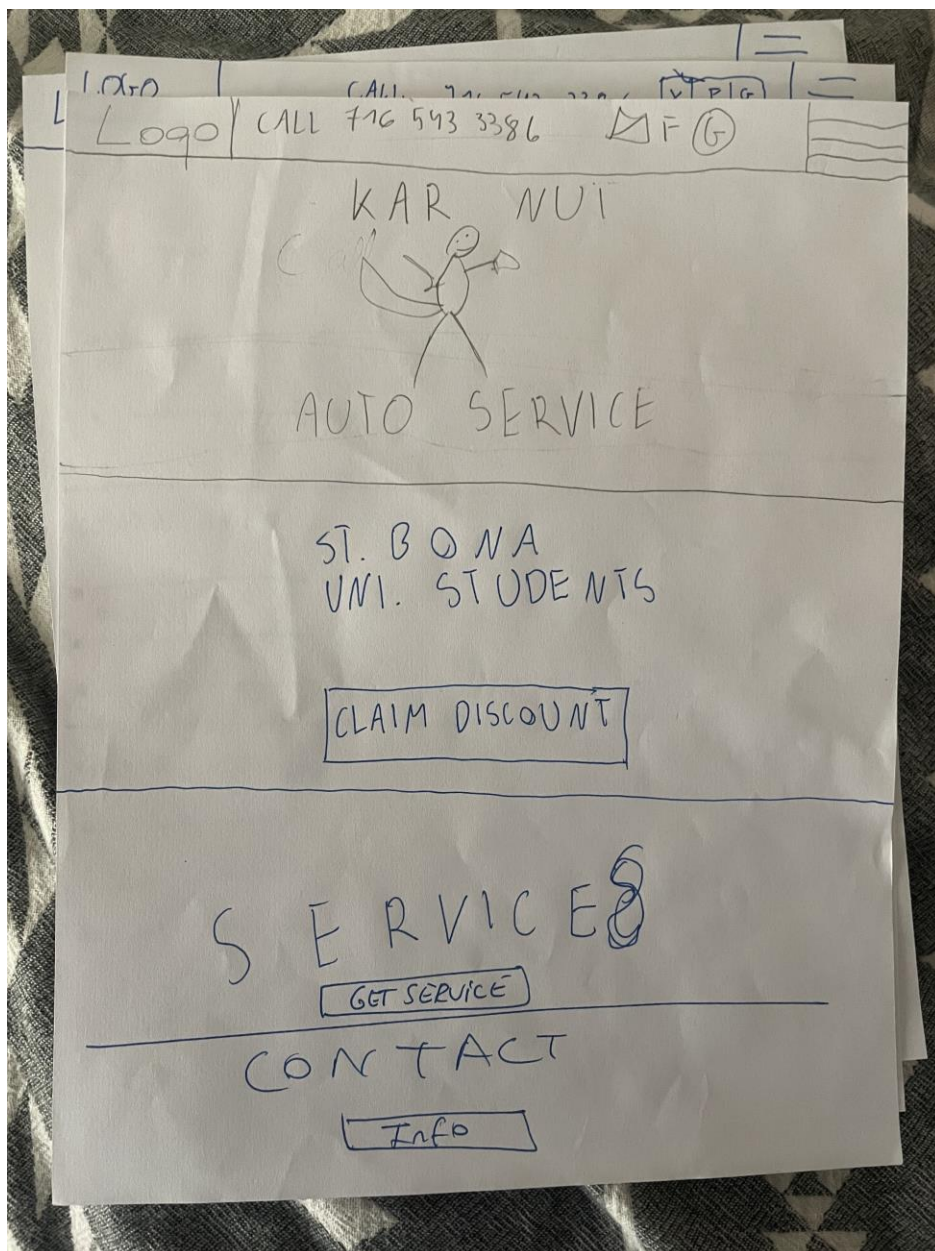 LOGO
CALL
Logo CALL 716 543 3386 F G
KAR NUT
Call
AUTO SERVICE
ST. BONA
UNI. STUDENTS
CLAIM DISCOUNT
SERVICES
GET SERVICE
CONTACT
Info